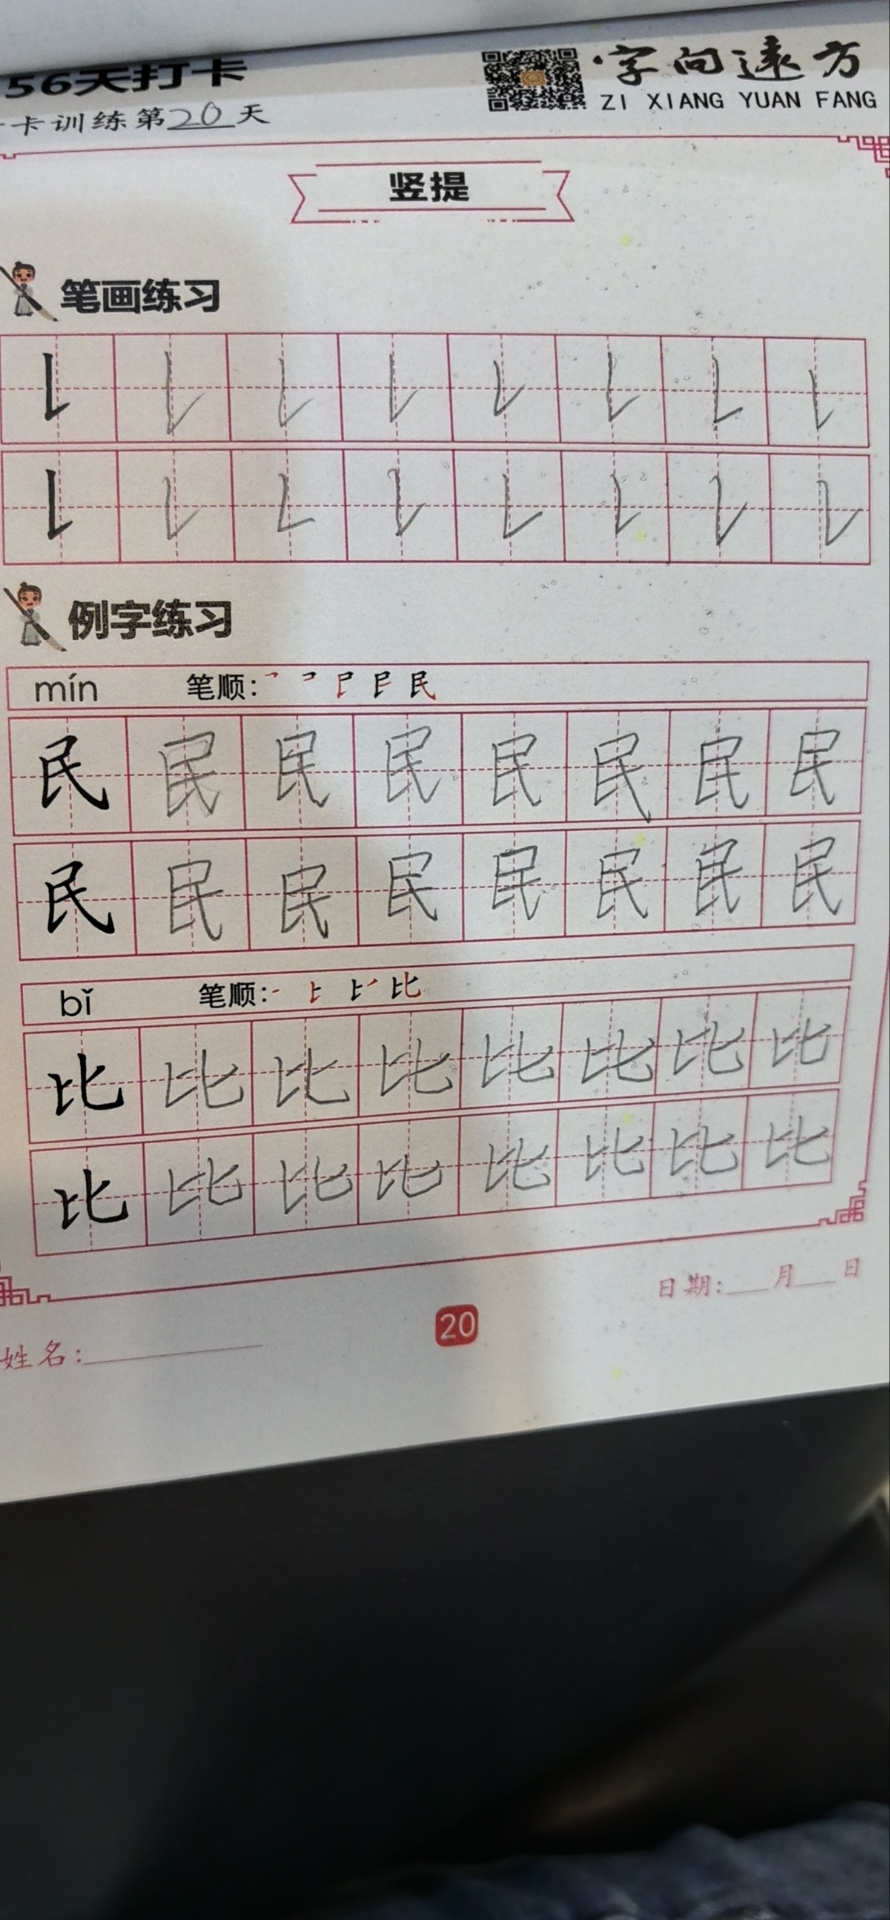 56天打卡
卡训练第20天
字向远方
ZI XIANG YUAN FANG
竖提
笔画练习
例字练习
mín 笔顺:
民 民 民 民 民 民 民 民
民 民 民 民 民 民 民 民
bǐ 笔顺:
比 比 比 比 比 比 比 比
比 比 比 比 比 比 比 比
日期:___月___日
20
姓名: